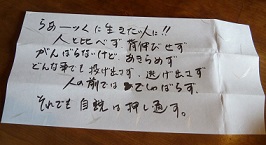 らあーっくに生きたい人に!!
人と比べず 背伸びせず
がんばらないけど あきらめず
どんな事でも投げ出さず、逃げ出さず
人の前では でしゃばらず。
それでも自我は押し通す。